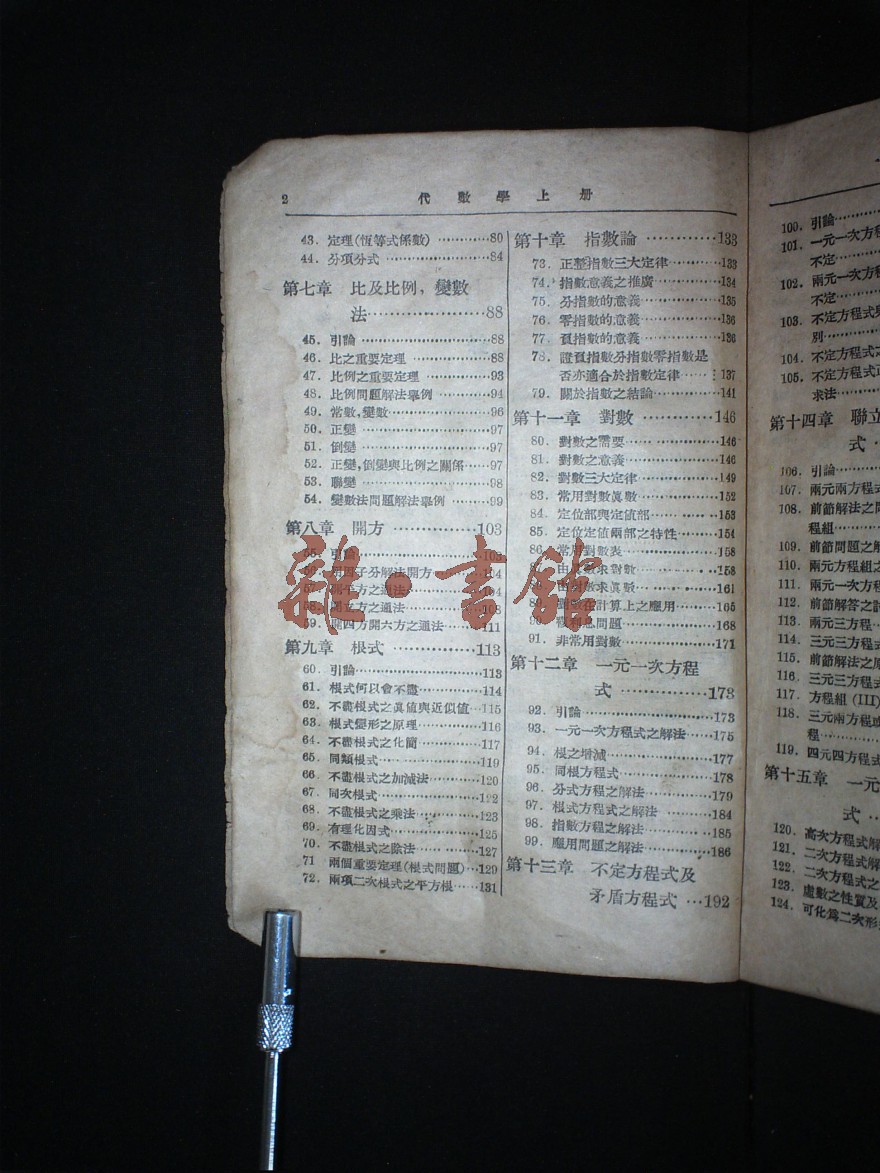 2
代數學上册
43. 定理(恆等式係數) …………80
44. 分項分式 ………………84
第七章 比及比例, 變數
法……………………88
45. 引論 ………………………88
46. 比之重要定理 ………………88
47. 比例之重要定理 ……………93
48. 比例問題解法舉例 …………94
49. 常數,變數…………………96
50. 正變 ………………………97
51. 倒變 ………………………97
52. 正變,倒變與比例之關係……97
53. 聯變 ………………………98
54. 變數法問題解法舉例 ………99
第八章 開方 ……………103
55. 引論
因子分解法開方
平方之通法
立方之通法
59. 開四方開六方之通法……111
第九章 根式 ……………113
60. 引論………………………113
61. 根式何以會不盡……………114
62. 不盡根式之眞値與近似値…115
63. 根式變形之原理……………116
64. 不盡根式之化簡……………117
65. 同類根式……………………119
66. 不盡根式之加減法…………120
67. 同次根式……………………122
68. 不盡根式之乘法……………123
69. 有理化因式…………………125
70. 不盡根式之除法……………127
71 兩個重要定理(根式問題)…129
72. 兩項二次根式之平方根……131
第十章 指數論 …………133
73. 正整指數三大定律…………133
74. 指數意義之推廣……………134
75. 分指數的意義………………135
76. 零指數的意義………………136
77. 負指數的意義………………136
78. 證負指數分指數零指數是
否亦適合於指數定律……137
79. 關於指數之結論……………141
第十一章 對數 …………146
80. 對數之需要…………………146
81. 對數之意義…………………146
82. 對數三大定律………………149
83. 常用對數眞數………………152
84. 定位部與定値部……………153
85. 定位定値兩部之特性………154
86. 常用對數表…………………158
87. 由眞數求對數………………158
88. 由對數求眞數………………161
89. 對數在計算上之應用………165
90. 複利息問題…………………168
91. 非常用對數…………………171
第十二章 一元一次方程
式 ……………173
92. 引論…………………………173
93. 一元一次方程式之解法……175
94. 根之增減……………………177
95. 同根方程式…………………178
96. 分式方程之解法……………179
97. 根式方程式之解法…………184
98. 指數方程之解法……………185
99. 應用問題之解法……………186
第十三章 不定方程式及
矛盾方程式 …192
雜·書館
100. 引論…………
101. 一元一次方程
不定…………
102. 兩元一次方程
不定…………
103. 不定方程式與
別……………
104. 不定方程式之
105. 不定方程式正
求法…………
第十四章 聯立
式 …
106. 引論…………
107. 兩元兩方程式
108. 前節解法之問
程組…………
109. 前節問題之解
110. 兩元方程組之
111. 兩元一次方程
112. 前節解答之討
113. 兩元三方程…
114. 三元三方程式
115. 前節解法之原
116. 三元三方程式
117. 方程組(III)
118. 三元兩方程或
程……………
119. 四元四方程式
第十五章 一元
式 …
120. 高次方程式解
121. 二次方程式解
122. 二次方程式之
123. 虛數之性質及
124. 可化爲二次形